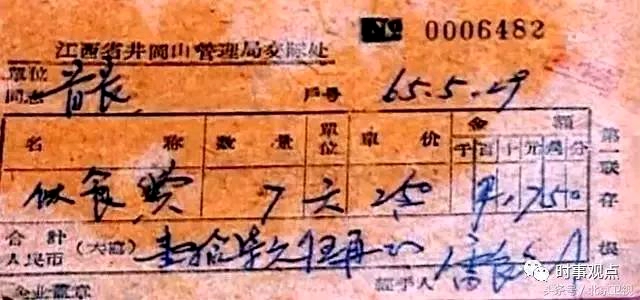 № 0006482
江西省井岡山管理局交际处
單位
同志 首長 戶号 65.5.29
名 称 數 量 單位 單 价 金 額
千 百 十 元 角 分
伙食费 7 天 250
合 計
人民币 (大寫) 壹拾柒元伍角
經手人
企业蓋章
第一联 存根
时事观点
头条号/北京卫视